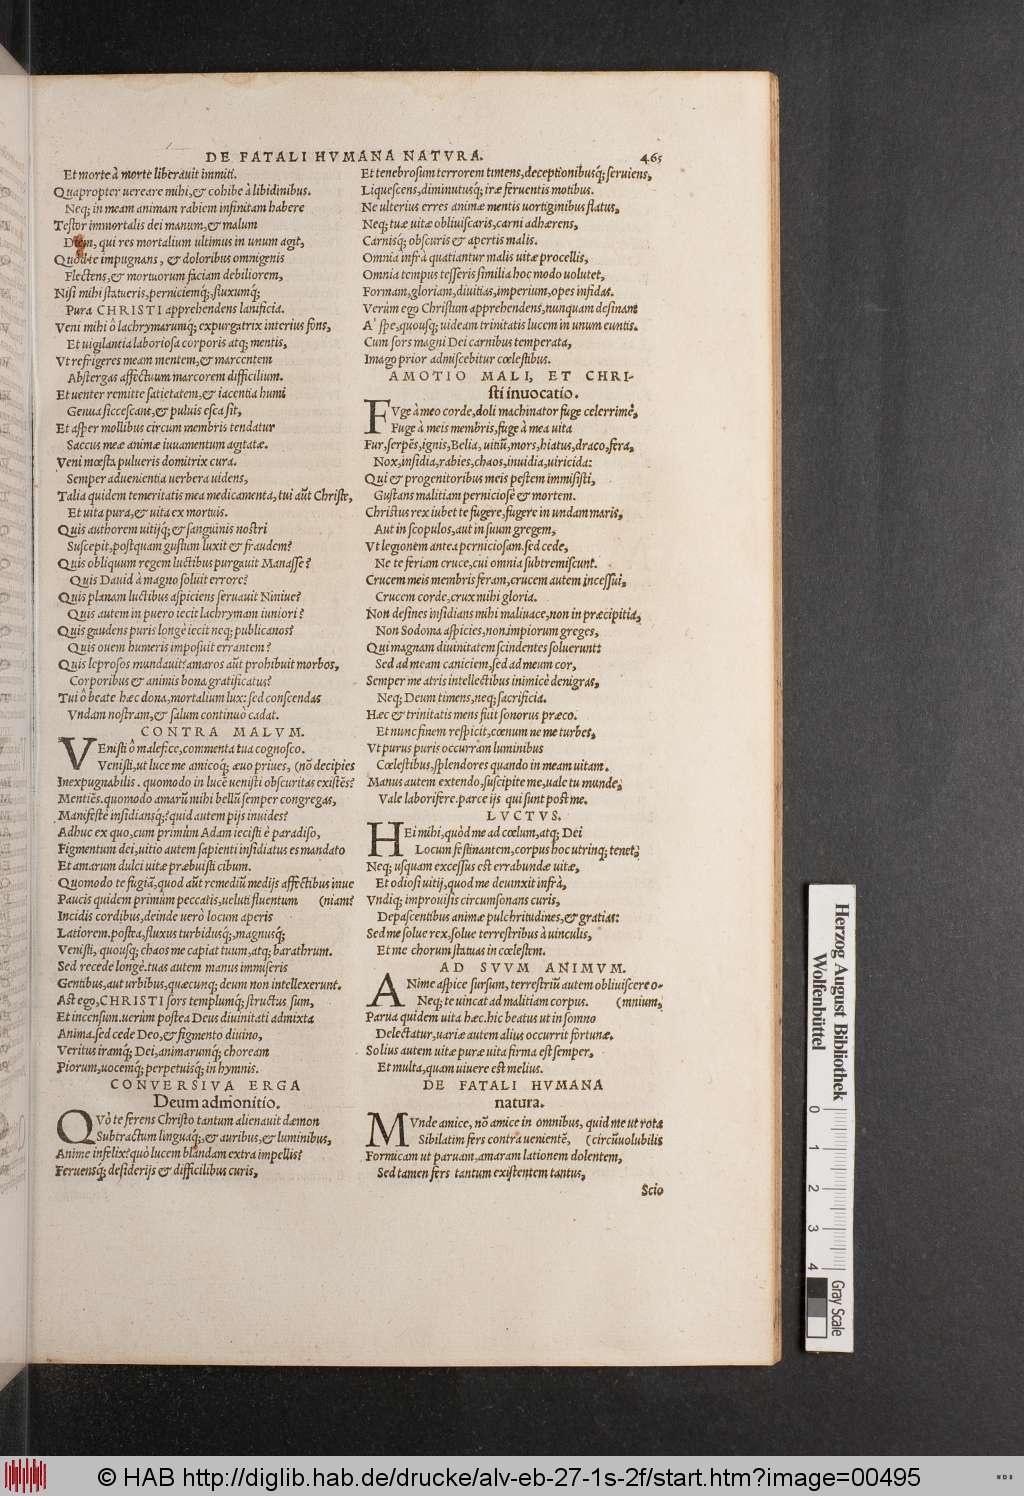 DE FATALI HVMANA NATVRA. 465
Et morte à morte liberauit immiti.
Quapropter uereare mihi, & cohibe à libidinibus.
Neq; in meam animam rabiem infinitam habere
Testor immortalis dei manum, & malum
Diem, qui res mortalium ultimus in unum agit,
impugnans, & doloribus omnigenis
Flectens, & mortuorum faciam debiliorem,
Nisi mihi statueris, perniciemq́; fluxumq́;
Pura CHRISTI apprehendens lanificia.
Veni mihi ô lachrymarumq́; expurgatrix interius fons,
Et uigilantia laboriosa corporis atq; mentis,
Vt refrigeres meam mentem, & marcentem
Abstergas affectuum marcorem difficilium.
Et uenter remitte satietatem, & iacentia humi
Genua siccescant, & puluis esca sit,
Et asper mollibus circum membris tendatur
Saccus meæ animæ iuuamentum agitatæ.
Veni mœsta pulueris domitrix cura.
Semper aduenientia uerbera uidens,
Talia quidem temeritatis mea medicamenta, tui aũt Christe,
Et uita pura, & uita ex mortuis.
Quis authorem uitijq́; & sanguinis nostri
Suscepit, postquam gustum luxit & fraudem?
Quis obliquum regem luctibus purgauit Manasse?
Quis Dauid à magno soluit errore?
Quis planam luctibus aspiciens seruauit Niniue?
Quis autem in puero iecit lachrymam iuniori?
Quis gaudens puris longè iecit neq; publicanos?
Quis ouem humeris imposuit errantem?
Quis leprosos mundauit? amaros aũt prohibuit morbos,
Corporibus & animis bona gratificatus?
Tui ô beate hæc dona, mortalium lux: sed conscendas
Vndam nostram, & salum continuò cadat.
CONTRA MALVM.
VEnisti ô malefice, commenta tua cognosco.
Venisti, ut luce me amicoq́; æuo priues, (nõ decipies
Inexpugnabilis. quomodo in lucẽ uenisti obscuritas existẽs?
Mentiẽs. quomodo amarũ mihi bellũ semper congregas,
Manifestè insidiansq́;? quid autem pijs inuides?
Adhuc ex quo, cum primùm Adam iecisti è paradiso,
Figmentum dei, uitio autem sapienti insidiatus es mandato
Et amarum dulci uitæ præbuisti cibum.
Quomodo te fugiã, quod aũt remediũ medijs affectibus inue
Paucis quidem primùm peccatis, ueluti fluentum (niam?
Incidis cordibus, deinde uerò locum aperis
Latiorem. postea, fluxus turbidusq́;, magnusq́;
Venisti, quousq; chaos me capiat tuum, atq; barathrum.
Sed recede longè. tuas autem manus immiseris
Gentibus, aut urbibus, quæcunq; deum non intellexerunt.
Ast ego, CHRISTI sors templumq́; structus sum,
Et incensum. uerùm postea Deus diuinitati admixta
Anima. sed cede Deo, & figmento diuino,
Veritus iramq́; Dei, animarumq́; choream
Piorum, uocemq́; perpetuisq́; in hymnis.
CONVERSIVA ERGA
Deum admonitio.
QVò te ferens Christo tantum alienauit dæmon
Subtractum linguáq́;, & auribus, & luminibus,
Anime infelix? quò lucem blandam extra impellis?
Feruensq́; desiderijs & difficilibus curis,
Et tenebrosum terrorem timens, deceptionibusq́; seruiens,
Liquescens, diminutusq́; iræ feruentis motibus.
Ne ulterius erres animæ mentis uortiginibus flatus,
Neq; tuæ uitæ obliuiscaris, carni adhærens,
Carnisq́; obscuris & apertis malis.
Omnia infrà quatiantur malis uitæ procellis,
Omnia tempus tesseris similia hoc modo uolutet,
Formam, gloriam, diuitias, imperium, opes infidas.
Verùm ego Christum apprehendens, nunquam desinam
A' spe, quousq; uideam trinitatis lucem in unum euntis.
Cum sors magni Dei carnibus temperata,
Imago prior admiscebitur cœlestibus.
AMOTIO MALI, ET CHRI-
sti inuocatio.
FVge à meo corde, doli machinator fuge celerrimè,
Fuge à meis membris, fuge à mea uita
Fur, serpẽs, ignis, Belia, uitiũ, mors, hiatus, draco, fera,
Nox, insidia, rabies, chaos, inuidia, uiricida:
Qui & progenitoribus meis pestem immisisti,
Gustans malitiam perniciosè & mortem.
Christus rex iubet te fugere, fugere in undam maris,
Aut in scopulos, aut in suum gregem,
Vt legionem antea perniciosam. sed cede,
Ne te feriam cruce, cui omnia subtremiscunt.
Crucem meis membris feram, crucem autem incessui,
Crucem corde, crux mihi gloria.
Non desines insidians mihi maliuace, non in præcipitia,
Non Sodoma aspicies, non impiorum greges,
Qui magnam diuinitatem scindentes soluerunt:
Sed ad meam caniciem, sed ad meum cor,
Semper me atris intellectibus inimicè denigras,
Neq; Deum timens, neq; sacrificia.
Hæc & trinitatis mens fuit sonorus præco.
Et nunc finem respicit, cœnum ne me turbes,
Vt purus puris occurram luminibus
Cœlestibus, splendores quando in meam uitam.
Manus autem extendo, suscipite me, uale tu munde,
Vale laborifere. parce ijs qui sunt post me.
LVCTVS.
HEi mihi, quòd me ad cœlum, atq; Dei
Locum festinantem, corpus hoc utrinq; tenet,
Neq; usquam excessus est errabundæ uitæ,
Et odiosi uitij, quod me deuinxit infrà,
Vndiq; improuisis circumsonans curis,
Depascentibus animæ pulchritudines, & gratias:
Sed me solue rex. solue terrestribus à uinculis,
Et me chorum statuas in cœlestem.
AD SVVM ANIMVM.
ANime aspice sursum, terrestriũ autem obliuiscere o-
Neq; te uincat ad malitiam corpus. (mnium,
Parua quidem uita hæc. hic beatus ut in somno
Delectatur, uariæ autem alius occurrit fortunæ.
Solius autem uitæ puræ uita firma est semper,
Et multa, quam uiuere est melius.
DE FATALI HVMANA
natura.
MVnde amice, nõ amice in omnibus, quid me ut rota
Sibilatim fers contra uenientẽ, (circũuolubilis
Formicam ut paruam, amaram lationem dolentem,
Sed tamen fers tantum existentem tantus,
Scio
Herzog August Bibliothek
Wolfenbüttel
0 1 2 3 4
Gray Scale
© HAB http://diglib.hab.de/drucke/alv-eb-27-1s-2f/start.htm?image=00495